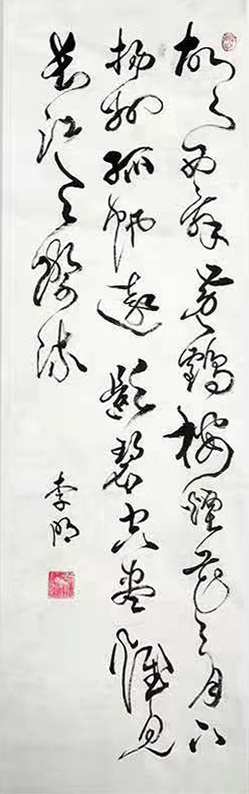 故人西辞黄鹤楼煙花三月下
扬州孤帆远影碧空尽惟见
长江天际流
李明